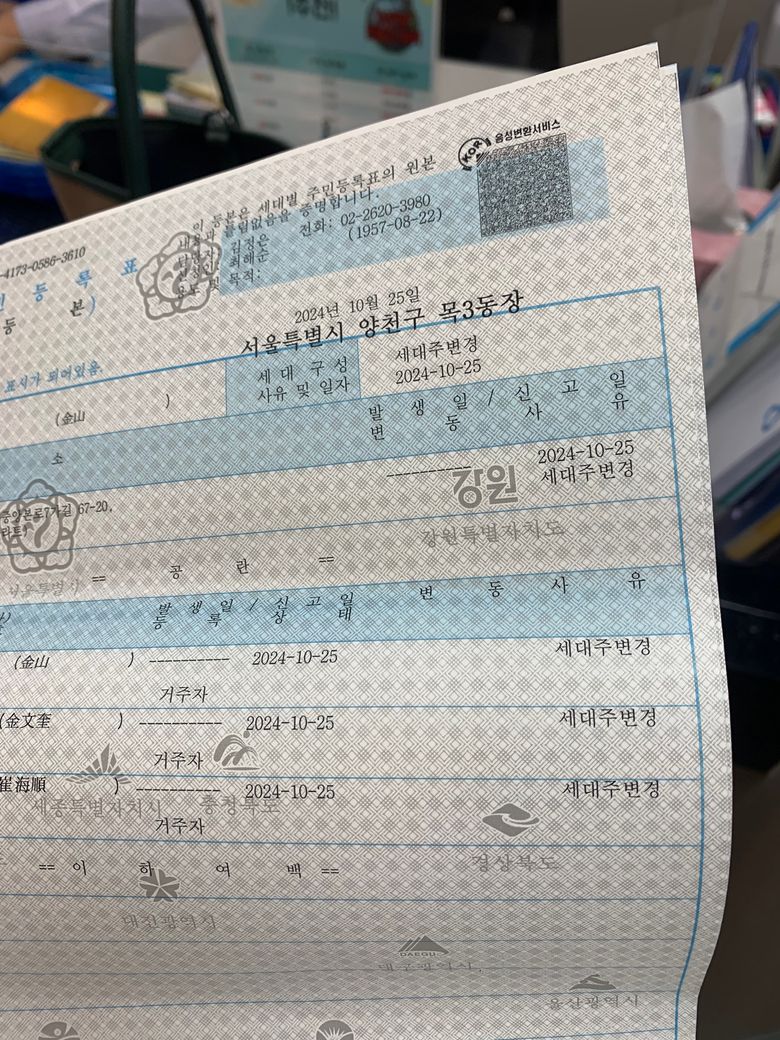 (주전!
KOR 음성변환서비스
이 등본은 세대별 주민등록표의 원본
내용과 틀림없음을 증명합니다.
담당자: 김정은 전화: 02-2620-3980
신청인: 최해순 (1957-08-22)
용도 및 목적:
-4173-0586-3610
민 등 록 표
등 본)
2024년 10월 25일
서울특별시 양천구 목3동장
표시가 되어있음.
(金山 )
세 대 구 성
사유 및 일자
세대주변경
2024-10-25
소
발 생 일 / 신 고 일
변 동 사 유
중앙본로7가길 67-20,
---------- 2024-10-25
세대주변경
강원
강원특별자치도
서울특별시
== 공 란 ==
발 생 일 / 신 고 일
등 록 상 태
변 동 사 유
(金山 ) ---------- 2024-10-25 세대주변경
거주자
(金文奎 ) ---------- 2024-10-25 세대주변경
거주자
崔海順 ) ---------- 2024-10-25 세대주변경
거주자
세종특별자치시 충청북도
== 이 하 여 백 ==
경상북도
대전광역시
DAEGU
대구광역시
울산광역시